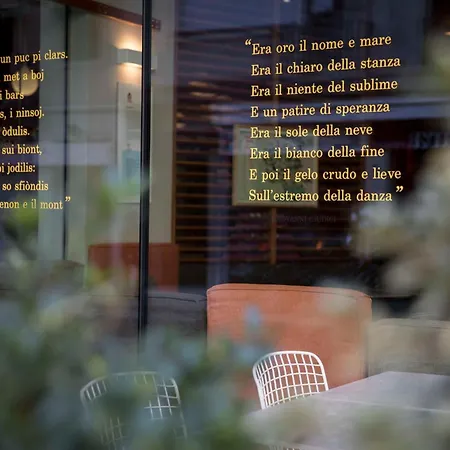 un puc pi clars.
met a boj
i bars
s, i ninsoj.
òdulis.
sui biont,
oi jodilis:
so sfiòndis
enon e il mont”
“Era oro il nome e mare
Era il chiaro della stanza
Era il niente del sublime
E un patire di speranza
Era il sole della neve
Era il bianco della fine
E poi il gelo crudo e lieve
Sull'estremo della danza”